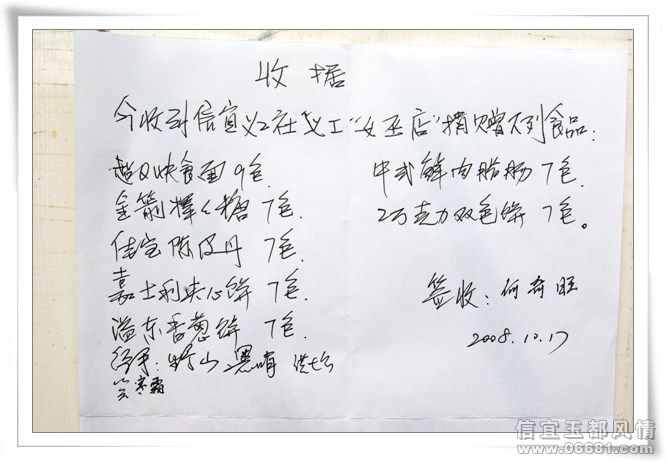 收据
今收到信宜义工在义工"女巫店"捐赠下列食品:
超Q快食面9包.
金箭棒棒糖 7包.
佳宝陈皮丹 7包.
嘉士利夹心饼 7包.
溢东香葱饼 7包.
中式鲜肉脂肠 7包.
巧克力双色饼 7包。
签收:何奇旺
2008.10.17
经手:
信宜玉都风情
www.06681.com